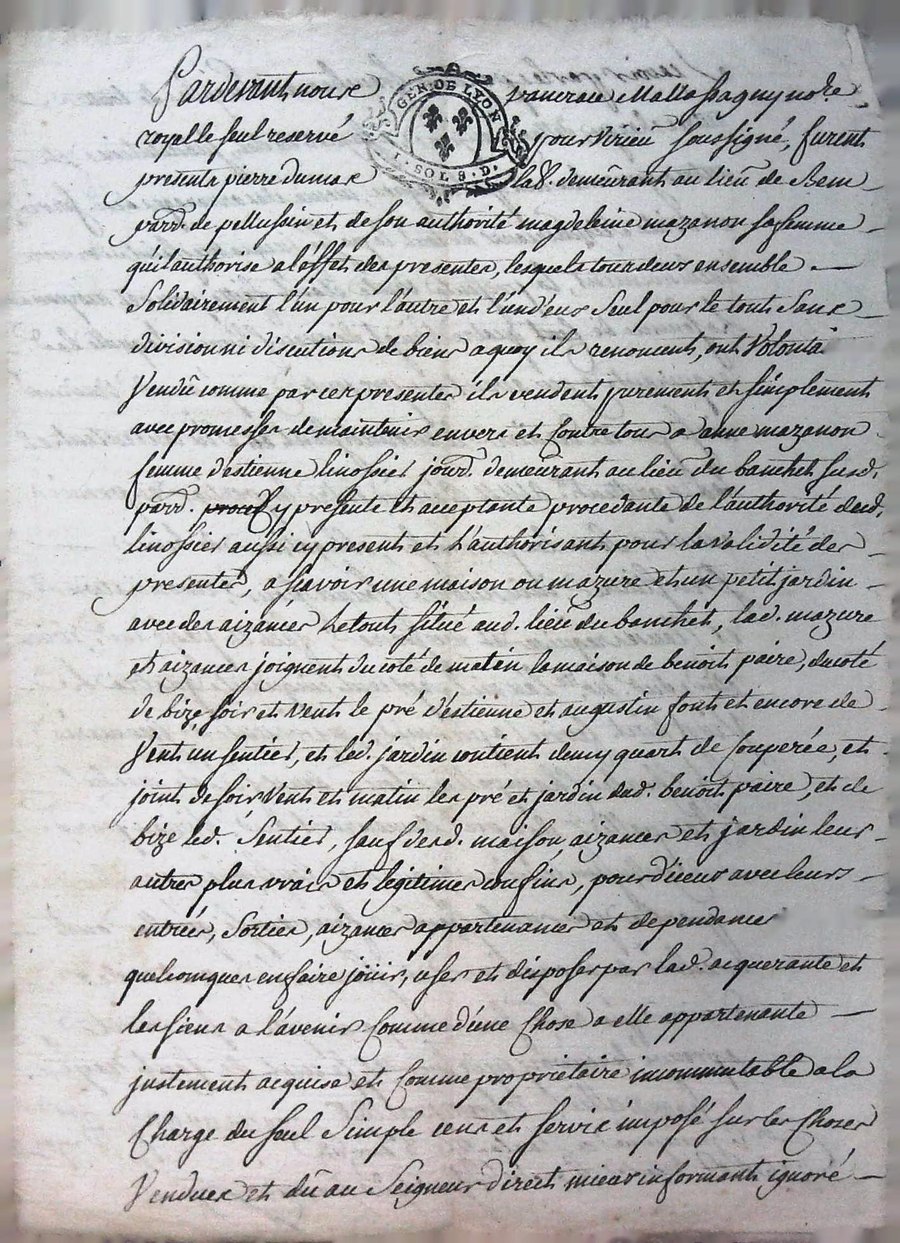 Pardevant nous
royal le seul reservé pour Virieu soussigné, furent
GEN. DE LYON
I. SOL 8. D.
presents pierre dumas lab.r demeurant au lieu de Bem
parr. de pellussin et de son authorité magdeleine mazenon sa femme
qu'il authorise a l'éffet des presentes, lesquels tour deux ensemble
Solidairement l'un pour l'autre et l'un d'eux seul pour le tout sans
division ni discutions de biens a quoy ils renoncent, ont Volontā
Vendû comme par ces presentes ils vendent purement et simplement
avec promesses de maintenir envers et Contre tous a anne mazenon
femme d'estienne linossier jourd. demeurant au lieu du banchet susd.
parr. proced y presente et acceptante procedante de l'authorité dud.
linossier aussi cy present et l'authorisant pour la validité des
presentes, a sçavoir une maison ou mazure et un petit jardin
avec des aizances le tout situé aud. lieu du banchet, lad. mazure
et aizances joignent du coté de matin la maison de benoit paire, du coté
de bize, soir et vent le pré d'estienne et augustin font et encore de
Vent un sentier, et led. jardin contient demy quart de couperée, et
joint de soir Vent et matin les pré et jardin dud. benoit paire, et de
bize led. Sentier, sauf desd. maison, aizances et jardin leurs
autres plus vrais et legitimes confins, pour d'iceux avec leurs
entrées, Sorties, aizances appartenances et dependances
quelconques en faire joüir, user et disposer par lad. acquerante et
les siens a l'avenir Comme d'une Chose a elle appartenante
justement acquise et Comme proprietaire incommutable a la
Charge du seul Simple cens et servis imposé sur les Choses
Vendues et dû au Seigneur direct mieux informant ignoré